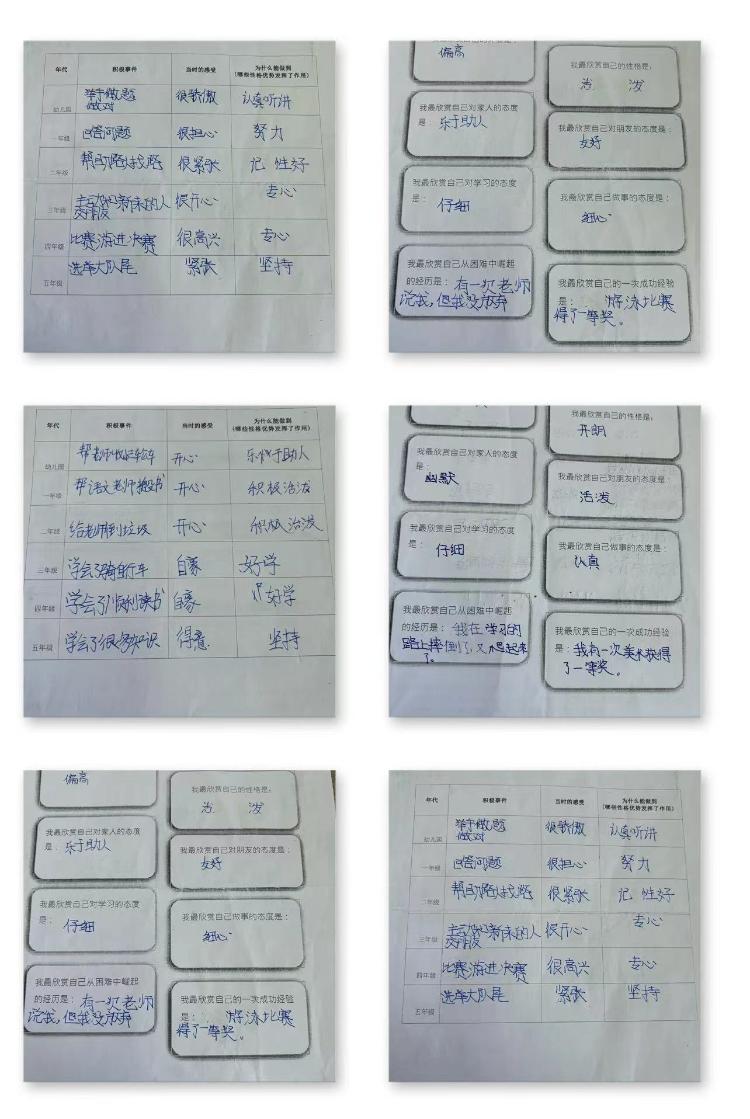 年代 积极事件 当时的感受 为什么能做到
(哪些性格优势发挥了作用)
幼儿园 举手做题 很骄傲 认真听讲
做对
一年级 回答问题 很担心 努力
二年级 很紧张 记 性好
三年级 主动和新来的人 很开心 专心
交朋友
四年级 比赛 进决赛 很高兴 专心
五年级 选举大队 紧张 坚持
偏高
我最欣赏自己的性格是:
活 泼
我最欣赏自己对家人的态度
是: 乐于助人
我最欣赏自己对朋友的态度是:
友好
我最欣赏自己对学习的态度
是: 仔细
我最欣赏自己做事的态度是:
细心
我最欣赏自己从困难中崛起
的经历是: 有一次老师
说我,但我没放弃
我最欣赏自己的一次成功经验
是: 游泳比赛
得了一等奖。
年代 积极事件 当时的感受 为什么能做到
(哪些性格优势发挥了作用)
幼儿园 开心 乐于助人
一年级 帮语文老师搬书 开心 积极活泼
二年级 给老师倒垃圾 开心 积极 活泼
三年级 学会了骑自行车 自豪 好学
四年级 学会了 读书 自豪 好学
五年级 学会了很多知识 得意 坚持
我最欣赏自己的性格是:
开朗
我最欣赏自己对家人的态度
是:
幽默
我最欣赏自己对朋友的态度是:
活泼
我最欣赏自己对学习的态度
是: 仔细
我最欣赏自己做事的态度是:
认真
我最欣赏自己从困难中崛起
的经历是: 我在学习的
路上摔倒了,又 起来
了。
我最欣赏自己的一次成功经验
是: 我有一次美术获得
了一等奖。
偏高
我最欣赏自己的性格是:
活 泼
我最欣赏自己对家人的态度
是: 乐于助人
我最欣赏自己对朋友的态度是:
友好
我最欣赏自己对学习的态度
是: 仔细
我最欣赏自己做事的态度是:
细心
我最欣赏自己从困难中崛起
的经历是: 有一次老师
说我,但我没放弃
我最欣赏自己的一次成功经验
是: 游泳比赛
得了一等奖。
年代 积极事件 当时的感受 为什么能做到
(哪些性格优势发挥了作用)
幼儿园 举手做题 很骄傲 认真听讲
做对
一年级 回答问题 很担心 努力
二年级 很紧张 记 性好
三年级 主动和新来的人 很开心 专心
交朋友
四年级 比赛 进决赛 很高兴 专心
五年级 选举大队 紧张 坚持